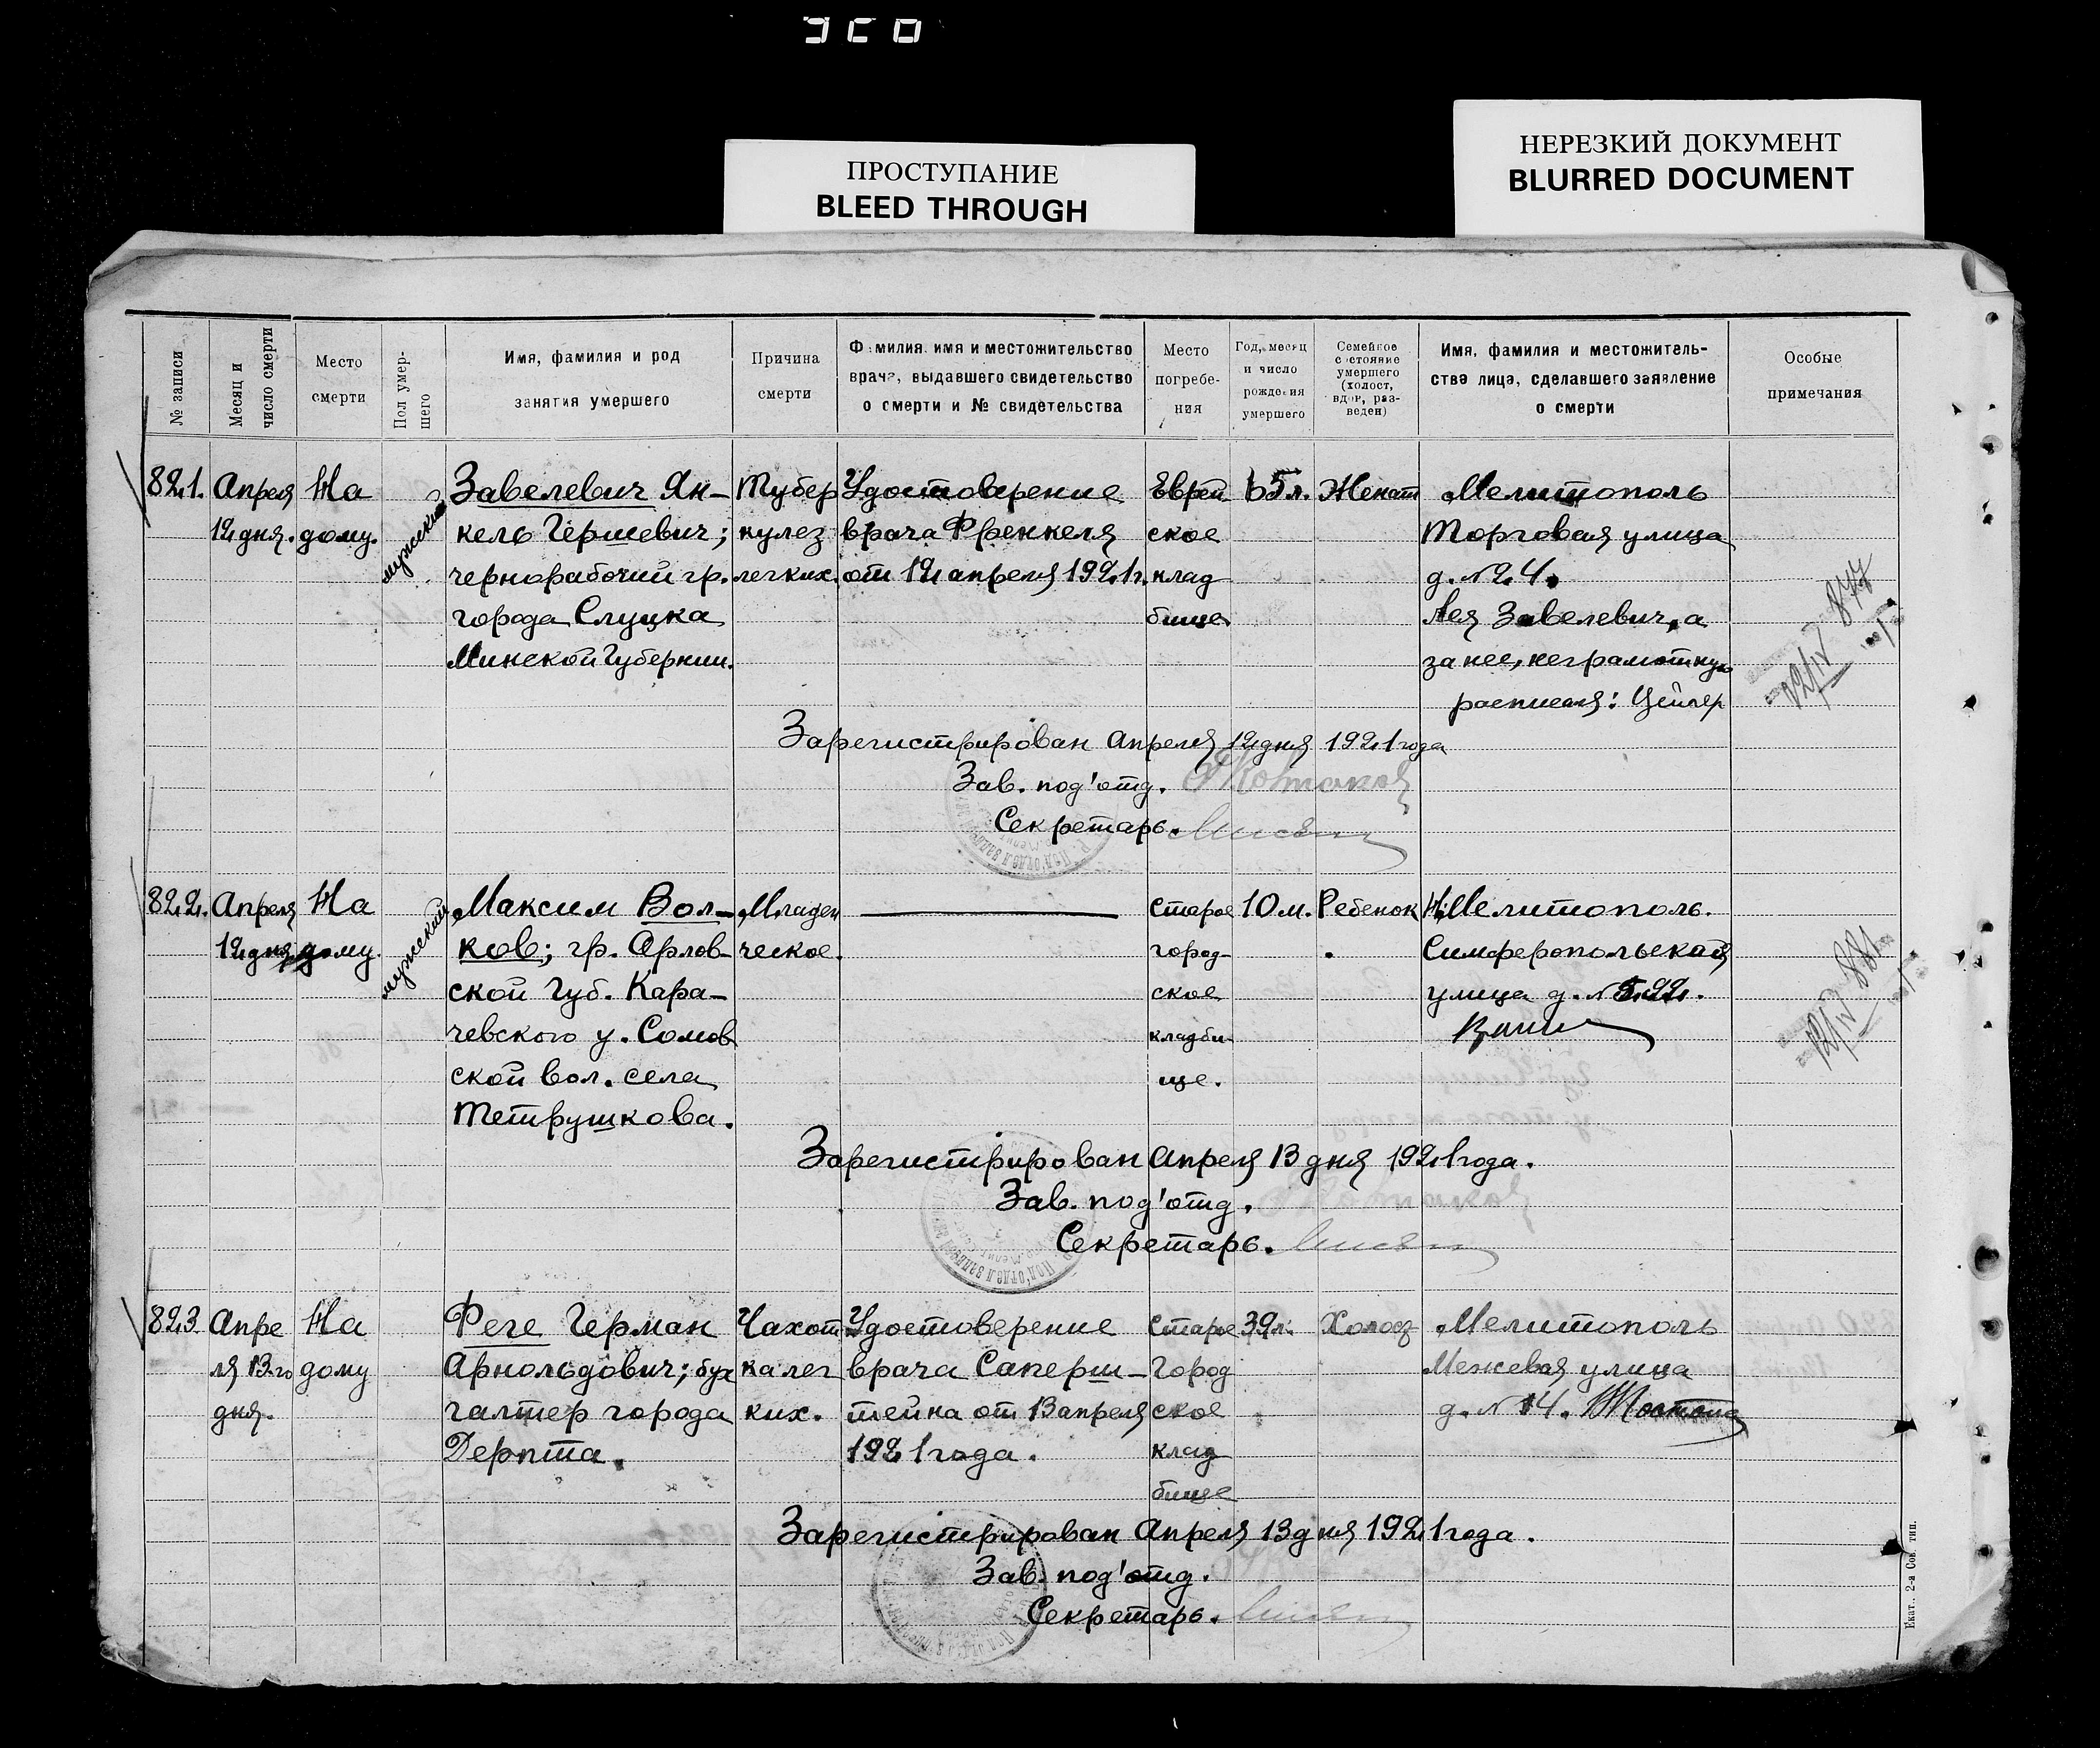 ПРОСТУПАНИЕ
BLEED THROUGH
НЕРЕЗКИЙ ДОКУМЕНТ
BLURRED DOCUMENT
№ записи
Месяц и число смерти
Место смерти
Пол умершего
Имя, фамилия и род занятия умершего
Причина смерти
Фамилия, имя и местожительство врача, выдавшего свидетельство о смерти и № свидетельства
Место погребения
Год, месяц и число рождения умершего
Семейное состояние умершего (холост, вдов, разведен)
Имя, фамилия и местожительства лица, сделавшего заявление о смерти
Особые примечания
821.
Апреля
12 дня.
На
дому.
мужской
Завелевич Ян-
кель Гершевич;
чернорабочий гр.
города Слуцка
Минской Губернии.
Тубер
кулез
легких.
Удостоверение
врача Френкеля
от 12 апреля 1921 г.
Еврей
ское
клад
бище
65 л.
Женат
Мелитополь
Торговая улица
д. № 24.
Лея Завелевич, а
за нее, неграмотную
расписался: Цейгер
12/IV 877
Зарегистрирован Апреля 12 дня 1921 года
Зав. под'отд.
Секретарь.
822.
Апреля
12 дня
На
дому.
мужской
Максим Вол-
ков; гр. Орлов-
ской Губ. Кара-
чевского у. Сомов
ской вол. села
Тетрушкова.
Младен
ческое.
Старое
город-
ское
кладби-
ще.
10 м.
Ребенок
Мелитополь.
Симферопольская
улица д. № 22.
12/IV 881
Зарегистрирован Апреля 13 дня 1921 года.
Зав. под'отд.
Секретарь.
823
Апре
ля 13-го
дня.
На
дому
Феге Герман
Арнольдович; бух
галтер города
Дерпта.
Чахот
ка лег
ких.
Удостоверение
врача Саперш-
тейна от 13 апреля
1921 года.
Старое
город
ское
клад
бище
39 л.
Холост
Мелитополь
Межевая улица
д. № 14.
Зарегистрирован Апреля 13 дня 1921 года.
Зав. под'отд.
Секретарь.
Екат., 2-я Сов. тип.